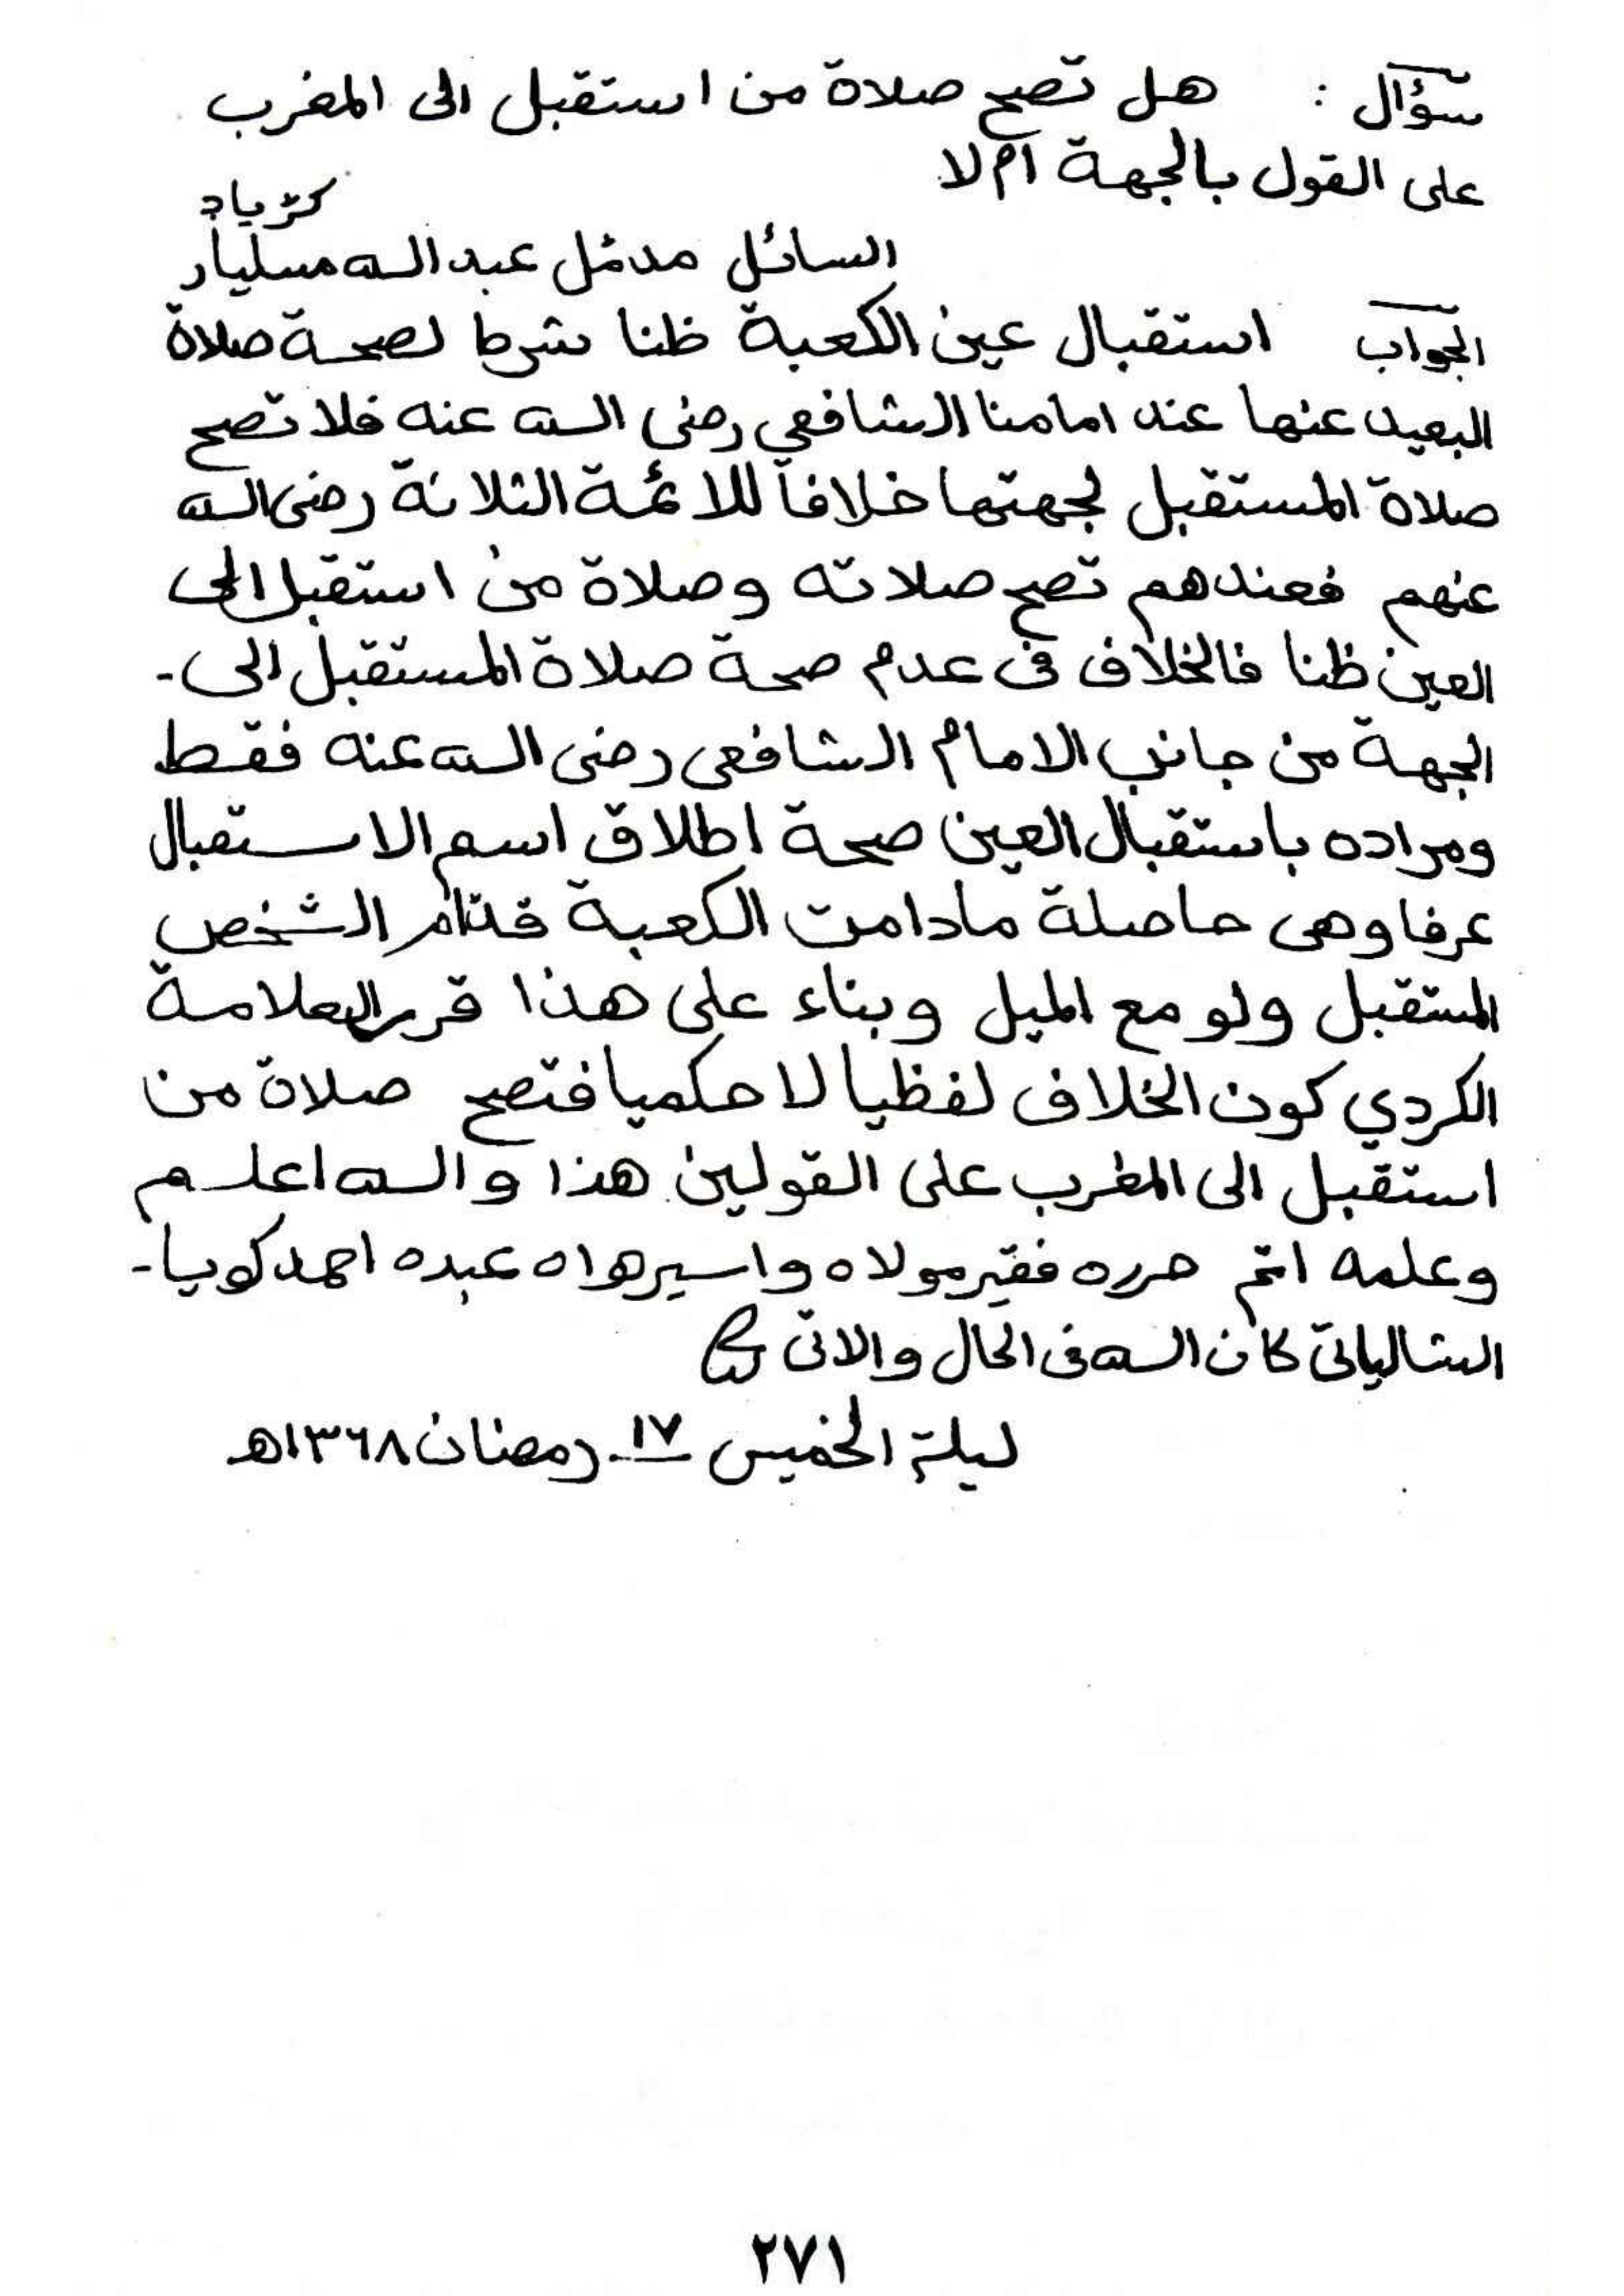 سؤال : هل تصح صلاة من استقبل الى المغرب
على القول بالجهة ام لا
كڙياڊ
السائل مدئل عبد الله مسليار
الجواب استقبال عين الكعبة ظنا شرط لصحة صلاة
البعيد عنها عند امامنا الشافعي رضى الله عنه فلا تصح
صلاة المستقبل لجهتها خلافا للائمة الثلاثة رضى الله
عنهم فعندهم تصح صلاته وصلاة من استقبل الى
العين ظنا فالخلاف فى عدم صحة صلاة المستقبل الى -
الجهة من جانب الامام الشافعى رضى الله عنه فقط
ومراده باستقبال العين صحة اطلاق اسم الاستقبال
عرفا وهى حاصلة مادامت الكعبة قدام الشخص
المستقبل ولو مع الميل وبناء على هذا قرر العلامة
الكردي كون الخلاف لفظيا لا حكميا فتصح صلاة من
استقبل الى المغرب على القولين هذا والله اعلم
وعلمه اتم حرره فقير مولاه واسير هواه عبده احمد كويا -
الشالياتى كان الله فى الحال والاتى
ليلة الخميس ١٧ رمضان ١٣٦٨هـ
٢٧١